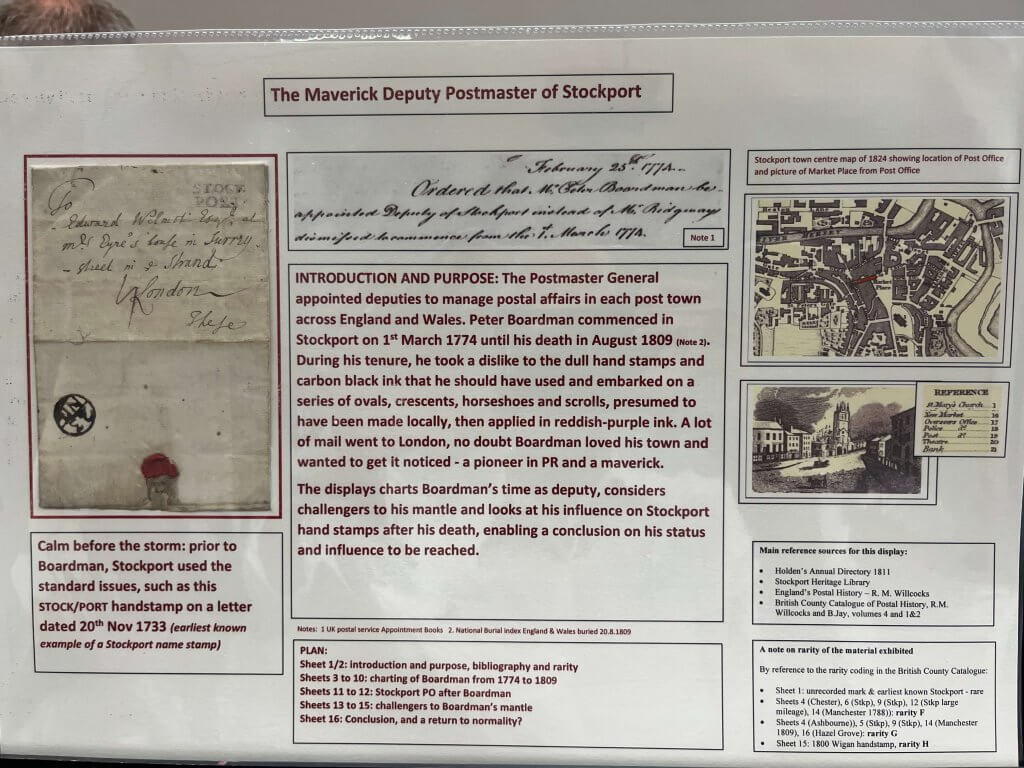 The Maverick Deputy Postmaster of Stockport
STOCK
PORT
To
Edward Wilmot Esqr. at
mrs Eyre's house in Surrey
street in ye Strand
London
These
February 25th. 1774.
Ordered that Mr. Peter Boardman be
appointed Deputy of Stockport instead of Mr. Ridgway
dismissed to commence from the 1. March 1774.
Note 1
Stockport town centre map of 1824 showing location of Post Office
and picture of Market Place from Post Office
INTRODUCTION AND PURPOSE: The Postmaster General
appointed deputies to manage postal affairs in each post town
across England and Wales. Peter Boardman commenced in
Stockport on 1st March 1774 until his death in August 1809 (Note 2).
During his tenure, he took a dislike to the dull hand stamps and
carbon black ink that he should have used and embarked on a
series of ovals, crescents, horseshoes and scrolls, presumed to
have been made locally, then applied in reddish-purple ink. A lot
of mail went to London, no doubt Boardman loved his town and
wanted to get it noticed - a pioneer in PR and a maverick.
The displays charts Boardman's time as deputy, considers
challengers to his mantle and looks at his influence on Stockport
hand stamps after his death, enabling a conclusion on his status
and influence to be reached.
REFERENCE
St. Mary's Church 1
New Market 16
Overseers Office 17
Police do. 18
Post do. 19
Theatre 20
Bank 21
Calm before the storm: prior to
Boardman, Stockport used the
standard issues, such as this
STOCK/PORT handstamp on a letter
dated 20th Nov 1733 (earliest known
example of a Stockport name stamp)
Notes: 1 UK postal service Appointment Books 2. National Burial index England & Wales buried 20.8.1809
PLAN:
Sheet 1/2: introduction and purpose, bibliography and rarity
Sheets 3 to 10: charting of Boardman from 1774 to 1809
Sheets 11 to 12: Stockport PO after Boardman
Sheets 13 to 15: challengers to Boardman's mantle
Sheet 16: Conclusion, and a return to normality?
Main reference sources for this display:
• Holden's Annual Directory 1811
• Stockport Heritage Library
• England's Postal History – R. M. Willcocks
• British County Catalogue of Postal History, R.M.
Willcocks and B.Jay, volumes 4 and 1&2
A note on rarity of the material exhibited
By reference to the rarity coding in the British County Catalogue:
• Sheet 1: unrecorded mark & earliest known Stockport - rare
• Sheets 4 (Chester), 6 (Stkp), 9 (Stkp), 12 (Stkp large
mileage), 14 (Manchester 1788)): rarity F
• Sheets 4 (Ashbourne)), 5 (Stkp), 9 (Stkp), 14 (Manchester
1809), 16 (Hazel Grove): rarity G
• Sheet 15: 1800 Wigan handstamp, rarity H